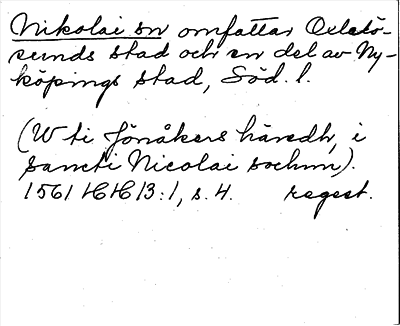 Nikolai sn omfattar Oxelö-
sunds stad och en del av Ny-
köpings stad, Söd. l.
(W ti Jönåkers häredh, i
Sancti Nicolai sochnn).
1561 HH 13:1, s. 4. regest.